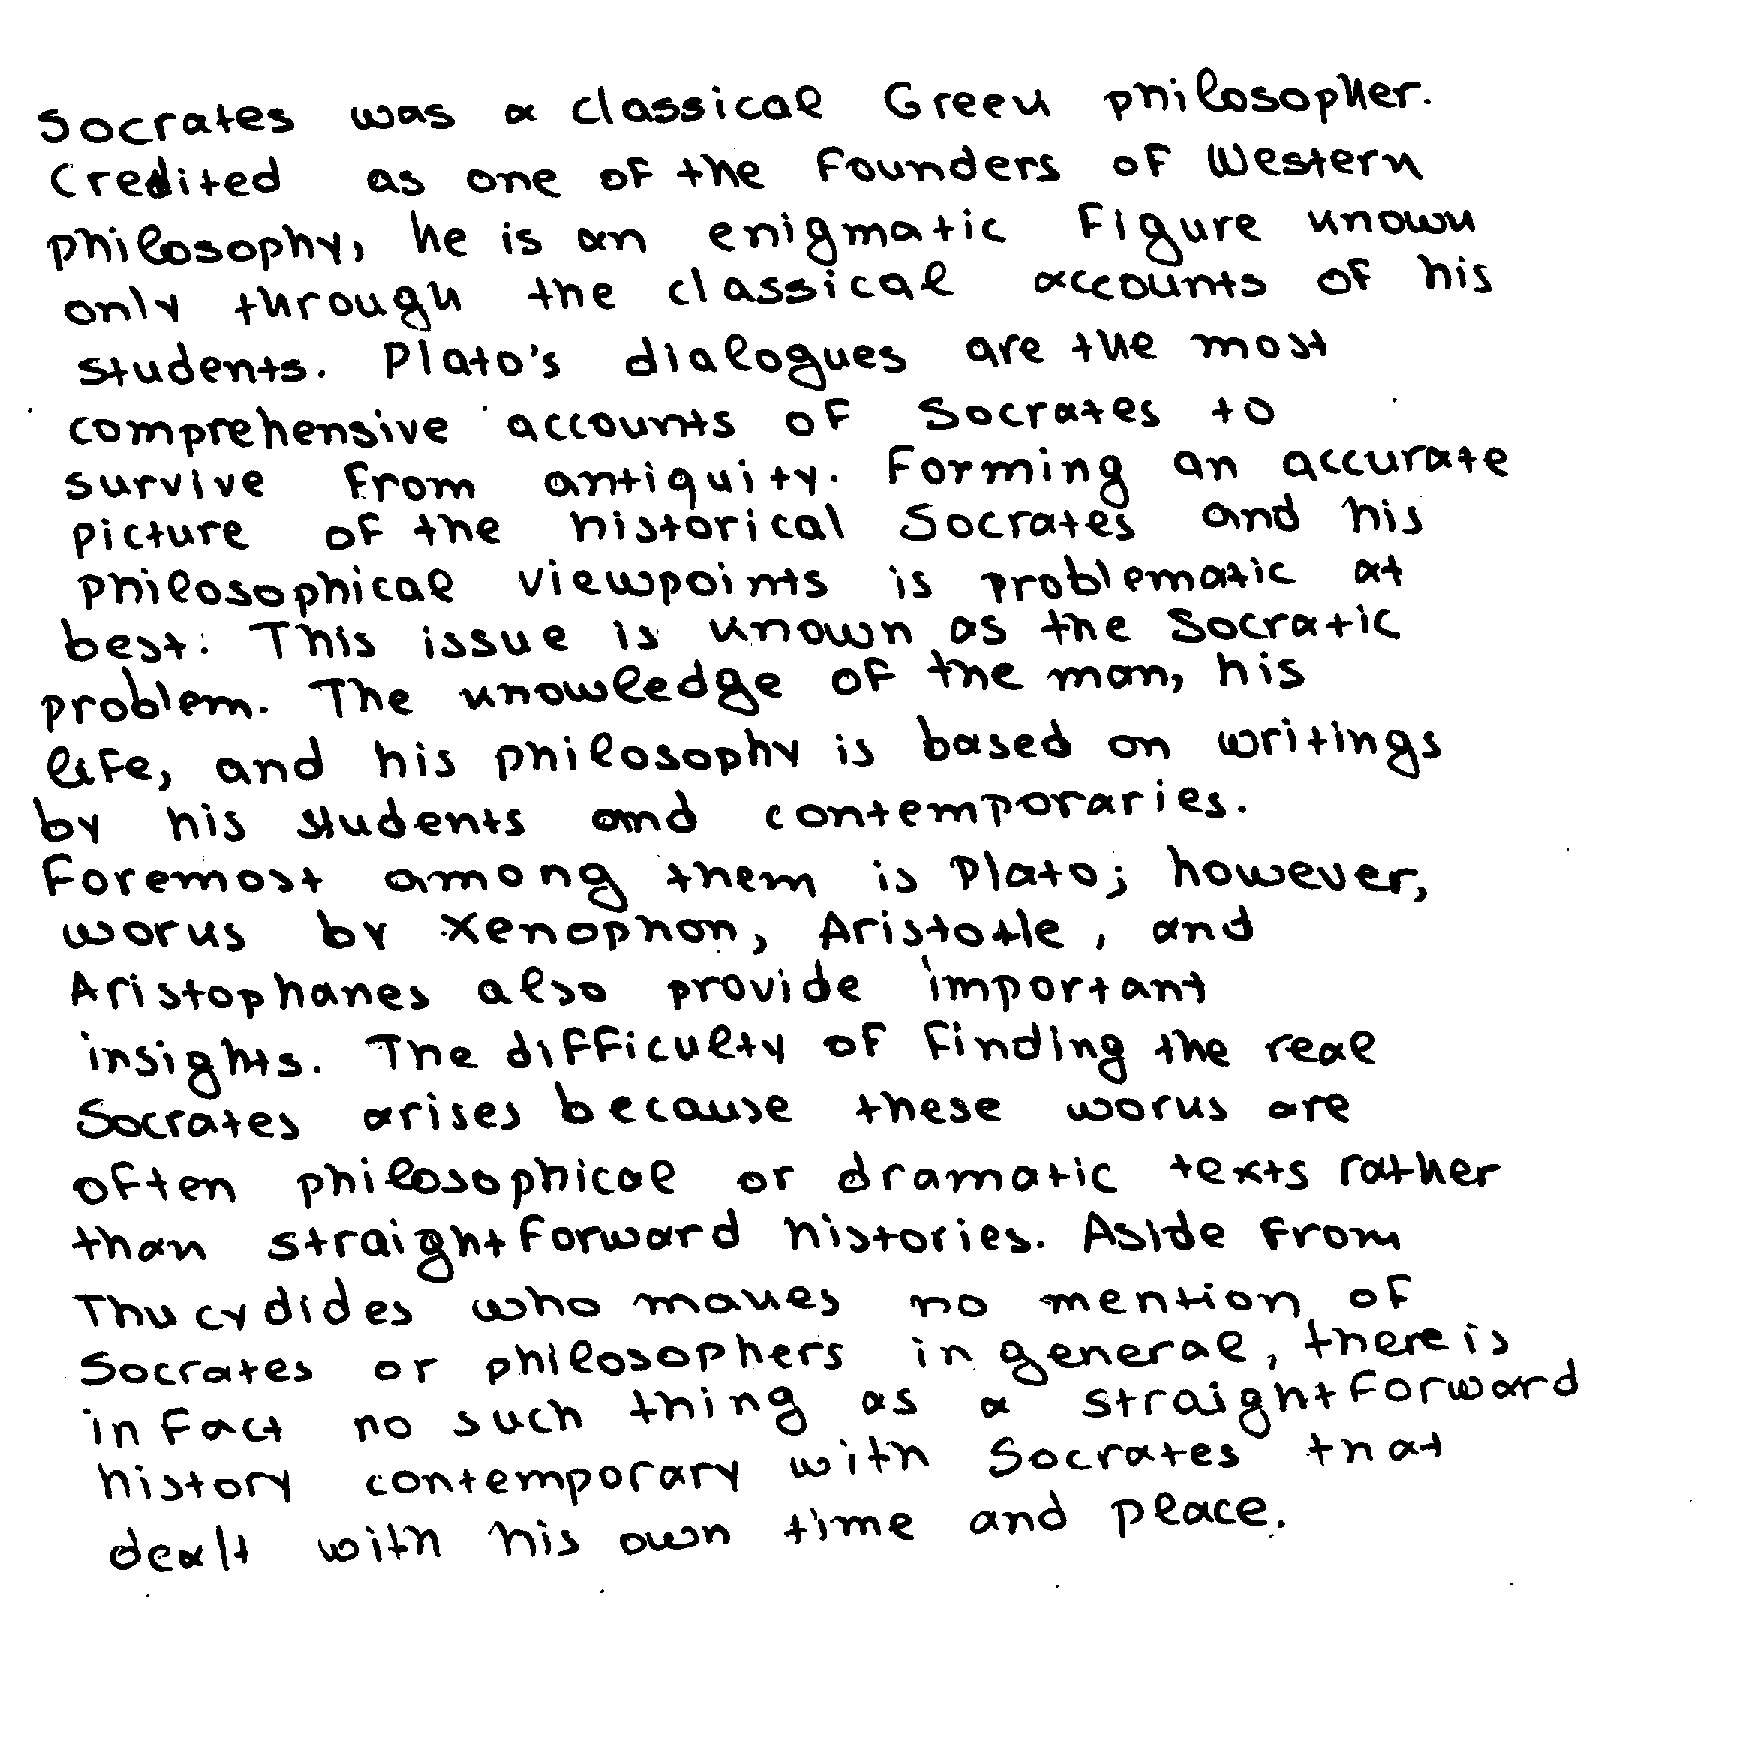 Socrates was a classical Greek philosopher.
Credited as one of the founders of Western
philosophy, he is an enigmatic figure known
only through the classical accounts of his
students. Plato's dialogues are the most
comprehensive accounts of Socrates to
survive from antiquity. Forming an accurate
picture of the historical Socrates and his
philosophical viewpoints is problematic at
best. This issue is known as the Socratic
problem. The knowledge of the man, his
life, and his philosophy is based on writings
by his students and contemporaries.
Foremost among them is Plato; however,
works by Xenophon, Aristotle, and
Aristophanes also provide important
insights. The difficulty of finding the real
Socrates arises because these works are
often philosophical or dramatic texts rather
than straightforward histories. Aside from
Thucydides who makes no mention of
Socrates or philosophers in general, there is
in fact no such thing as a straightforward
history contemporary with Socrates that
dealt with his own time and place.